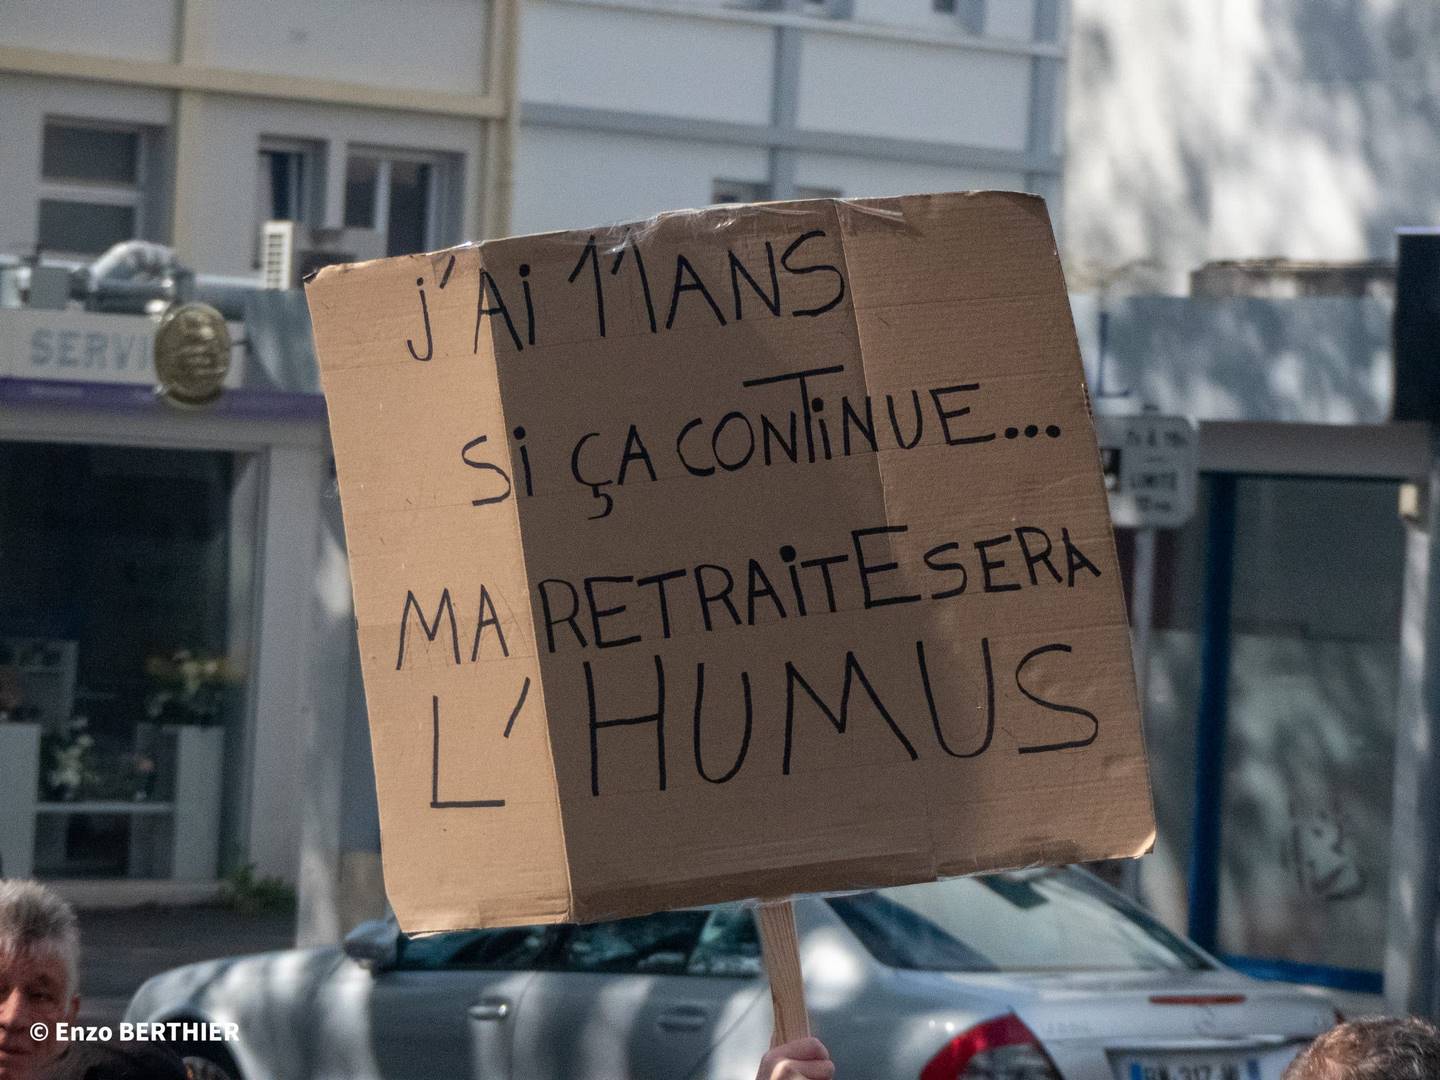 J'Ai 11 ANS
Si ÇA CONTiNUE...
MA RETRAiTE SERA
L'HUMUS
SERVI
LIMITÉ
© Enzo BERTHIER